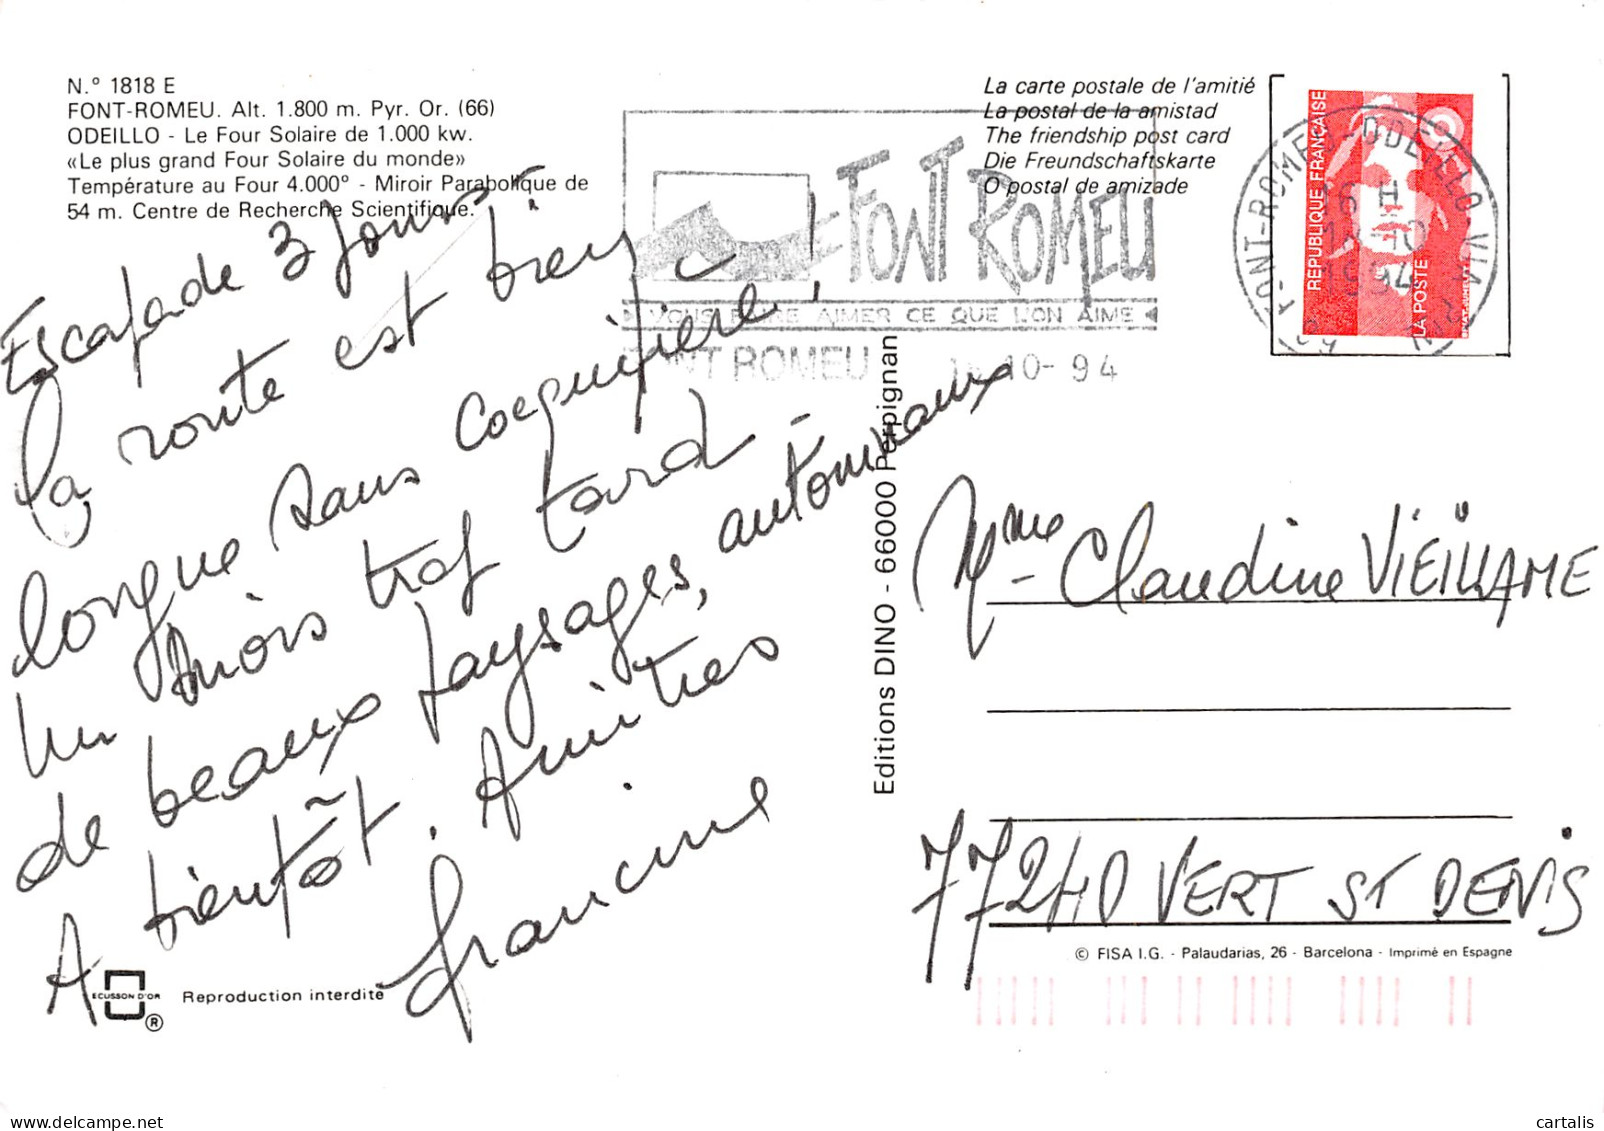 N.° 1818 E
FONT-ROMEU. Alt. 1.800 m. Pyr. Or. (66)
ODEILLO - Le Four Solaire de 1.000 kw.
«Le plus grand Four Solaire du monde»
Température au Four 4.000° - Miroir Parabolique de
54 m. Centre de Recherche Scientifique.
La carte postale de l'amitié
La postal de la amistad
The friendship post card
Die Freundschaftskarte
O postal de amizade
FONT ROMEU
VOUS ALLEZ AIMER CE QUE L'ON AIME
FONT ROMEU 10-94
FONT-ROMEU-ODEILLO-VIA
16 H
10
1994
REPUBLIQUE FRANÇAISE
LA POSTE
Escapade 3 jours
la route est bien
longue sans coéquipière!
un mois trop tard -
de beaux paysages, automnaux
A bientôt. Amitiés
Francine
Editions DINO - 66000 Perpignan
Mme Claudine VIEILLAME
77240 VERT ST DENIS
© FISA I.G. - Palaudarias, 26 - Barcelona - Imprimé en Espagne
ECUSSON D'OR ®
Reproduction interdite
cartalis